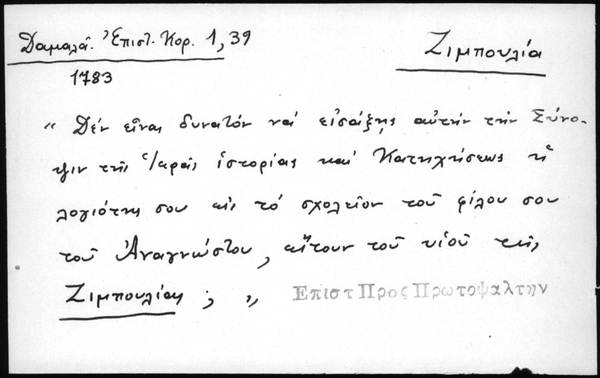 Δαμαλᾶ. Ἐπιστ. Κορ. 1, 39
Ζιμπουλία
1783
" Δέν εἶναι δυνατόν νά εἰσάξῃς αὐτήν τήν Σύνο-
ψιν τῆς Ἱερᾶς ἱστορίας καί Κατηχήσεως ἡ
λογιότης σου εἰς τό σχολεῖον τοῦ φίλου σου
τοῦ Ἀναγνώστου, ἤτουν τοῦ υἱοῦ τῆς
Ζιμπουλίας ; "
Επιστ Προς Πρωτοψαλτην